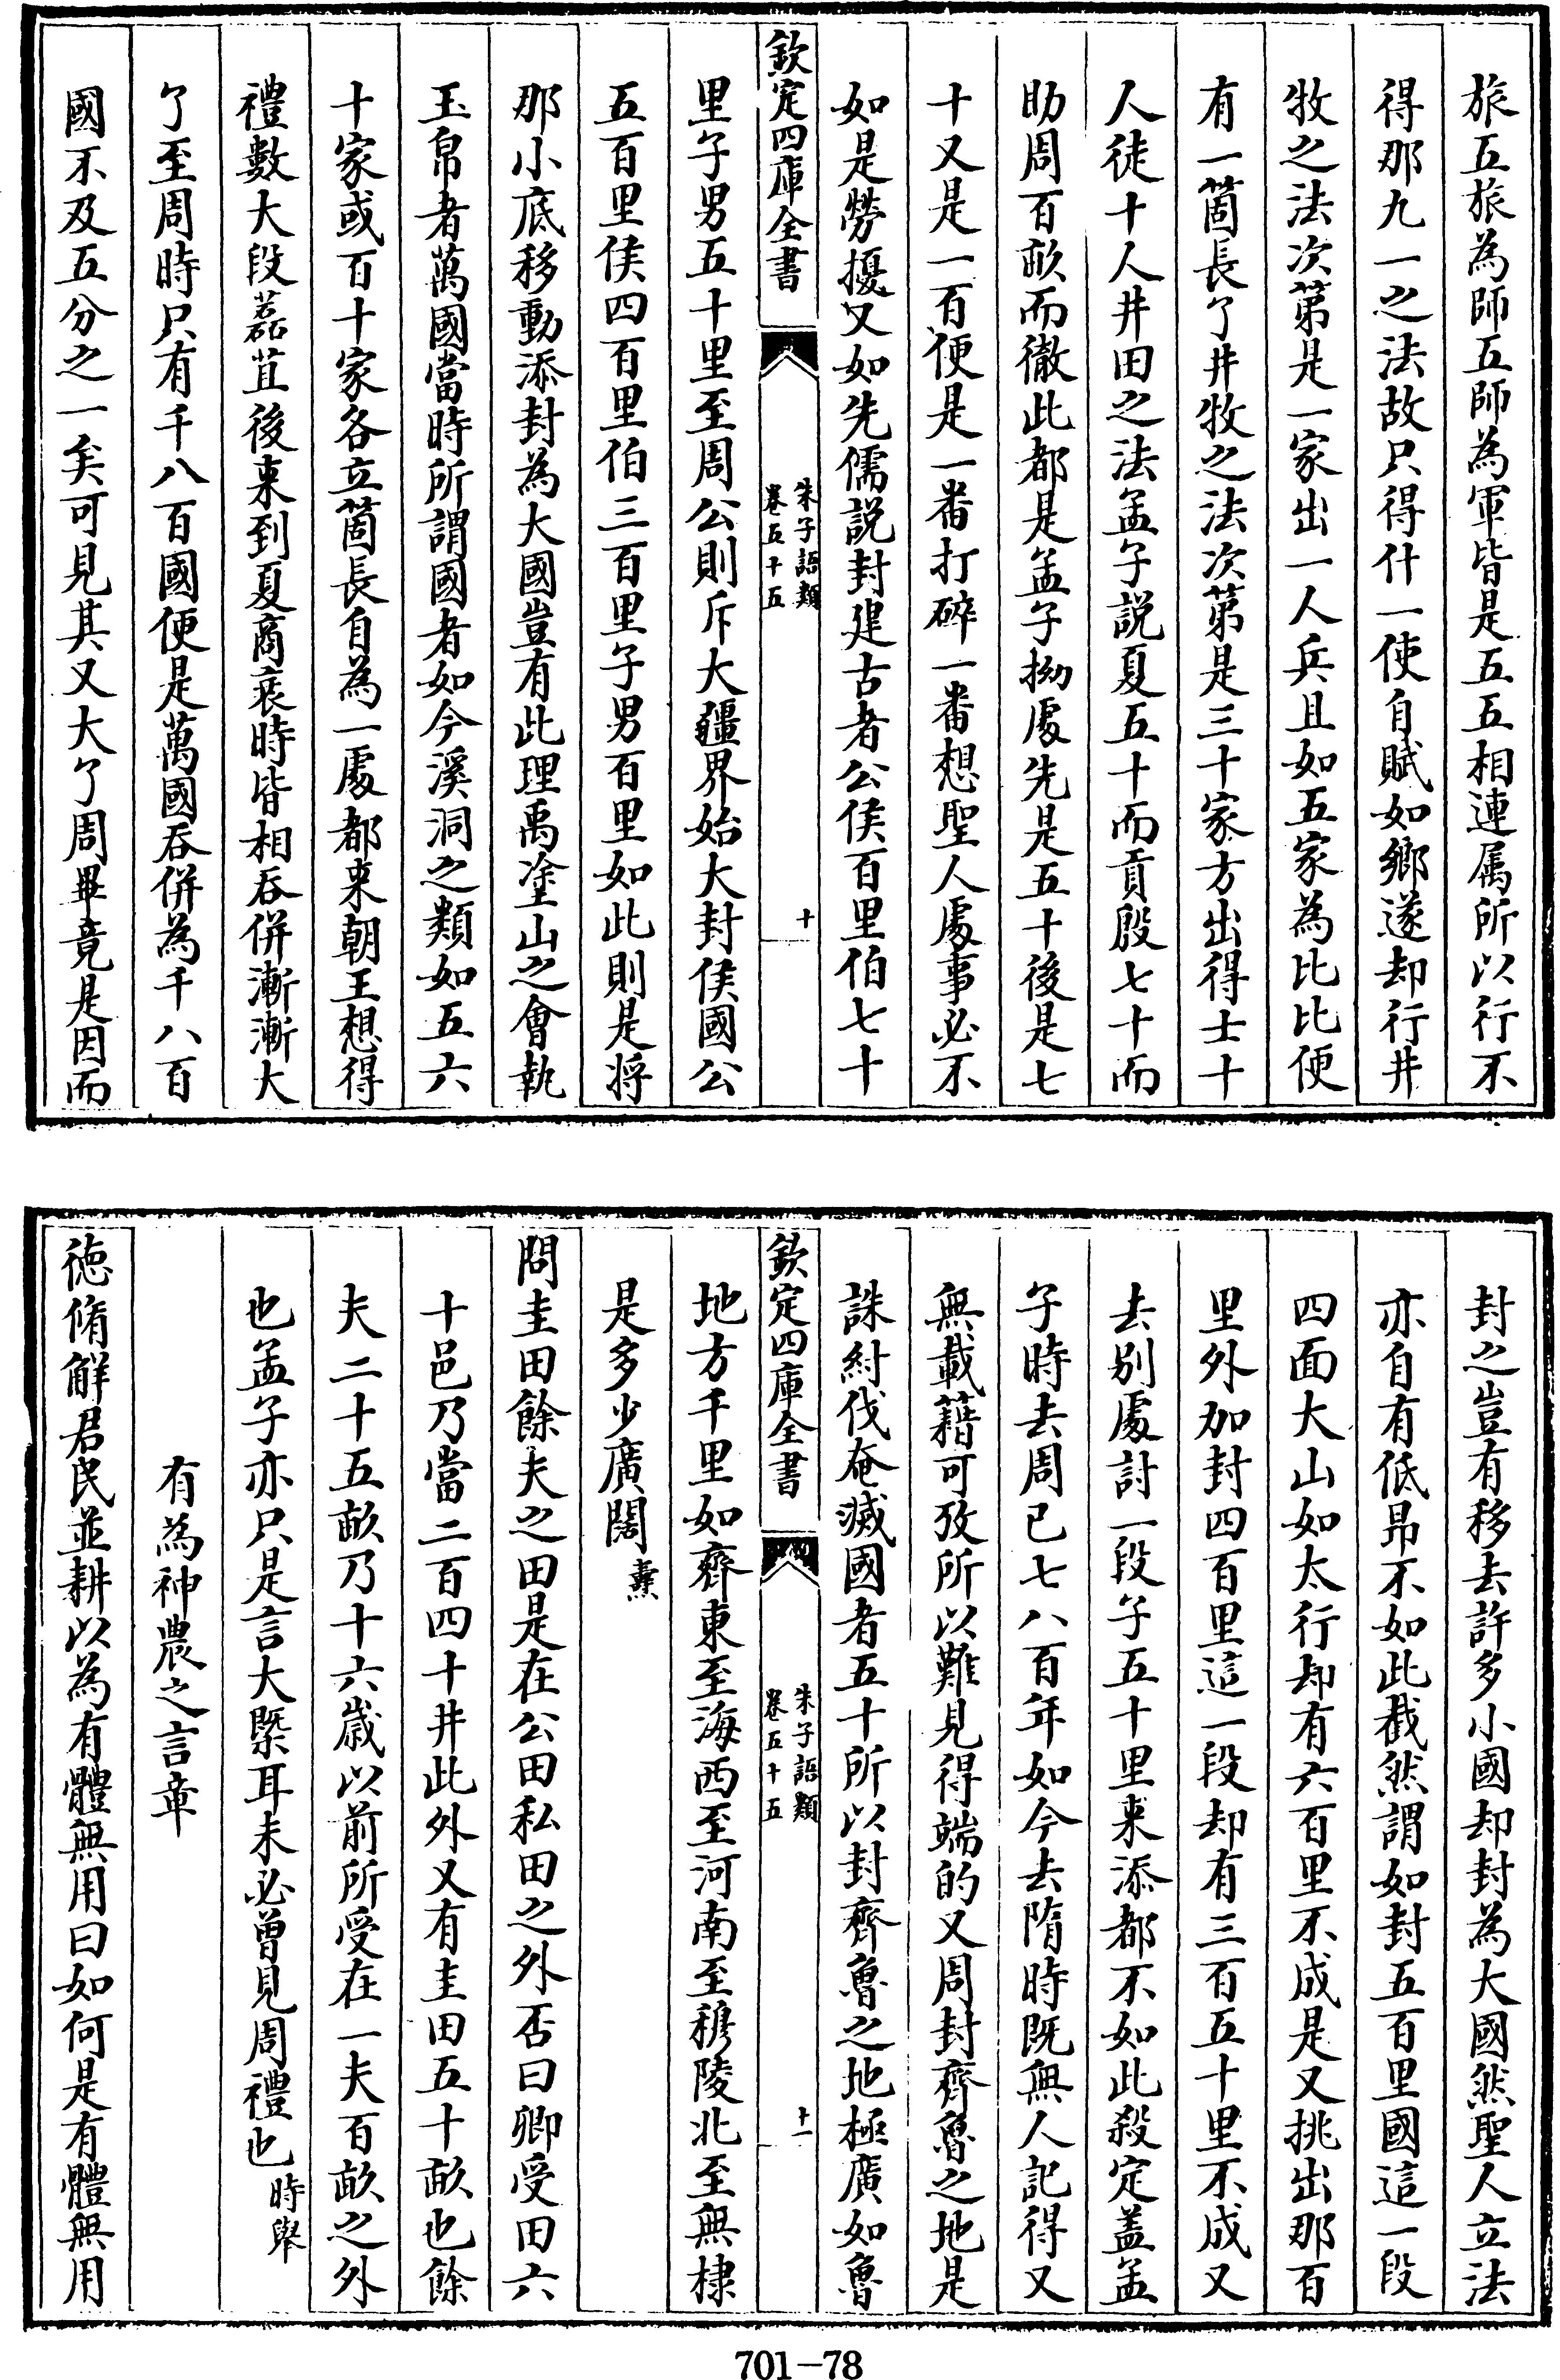 旅五旅為師五師為軍皆是五五相連属所以行不
得那九一之法故只得什一使自賦如鄉遂却行井
牧之法次第是一家出一人兵且如五家為比比便
有一箇長了井牧之法次第是三十家方出得士十
人徒十人井田之法孟子説夏五十而貢殷七十而
助周百畝而徹此都是孟子拗處先是五十後是七
十又是一百便是一番打碎一番想聖人處事必不
如是勞擾又如先儒説封建古者公侯百里伯七十
欽定四庫全書
朱子語類
卷五十五
十
里子男五十里至周公則斥大疆界始大封侯國公
五百里侯四百里伯三百里子男百里如此則是将
那小底移動添封為大國豈有此理禹塗山之會執
玉帛者萬國當時所謂國者如今溪洞之類如五六
十家或百十家各立箇長自為一處都來朝王想得
禮數大段藞苴後來到夏商衰時皆相吞併漸漸大
了至周時只有千八百國便是萬國吞併為千八百
國不及五分之一矣可見其又大了周畢竟是因而
封之豈有移去許多小國却封為大國然聖人立法
亦自有低昻不如此截然謂如封五百里國這一段
四面大山如太行却有六百里不成是又挑出那百
里外加封四百里這一段却有三百五十里不成又
去别處討一段子五十里來添都不如此殺定盖孟
子時去周已七八百年如今去隋時既無人記得又
無載籍可攷所以難見得端的又周封齊魯之地是
誅紂伐奄滅國者五十所以封齊魯之地極廣如魯
欽定四庫全書
朱子語類
卷五十五
十一
地方千里如齊東至海西至河南至穆陵北至無棣
是多少廣闊 燾
問圭田餘夫之田是在公田私田之外否曰卿受田六
十邑乃當二百四十井此外又有圭田五十畝也餘
夫二十五畝乃十六歳以前所受在一夫百畝之外
也孟子亦只是言大槩耳未必曾見周禮也 時舉
有為神農之言章
徳脩解君民並耕以為有體無用曰如何是有體無用
701-78